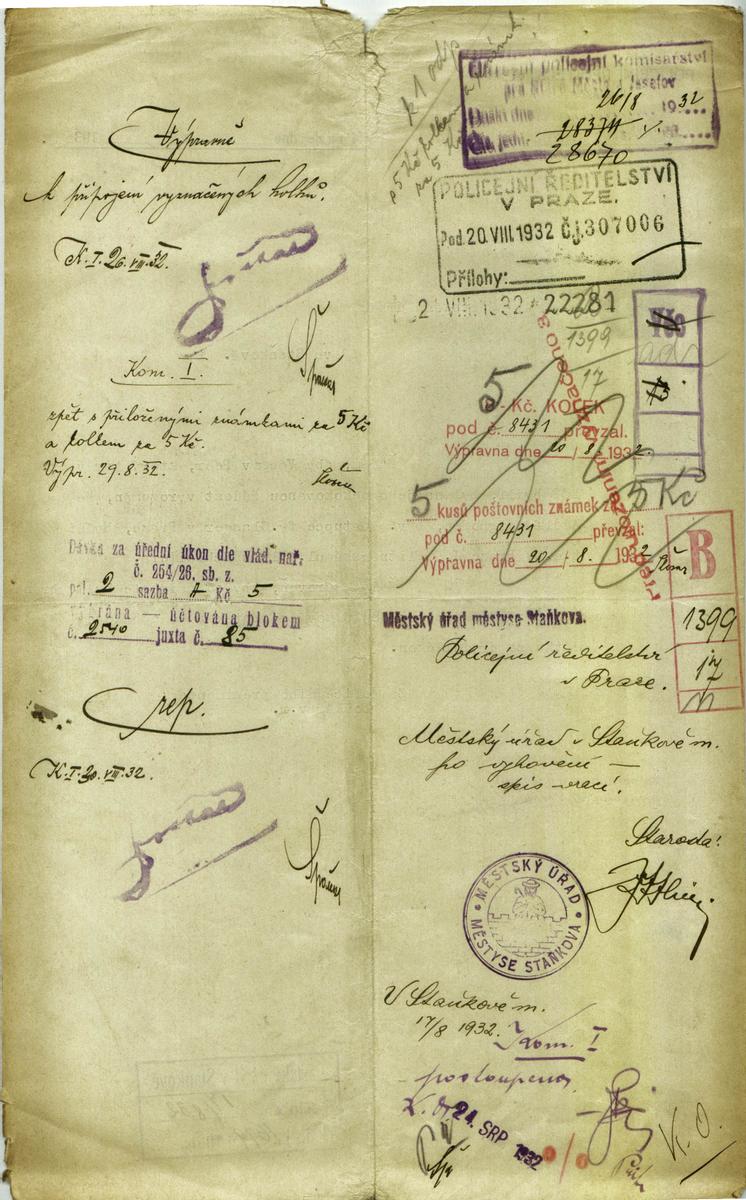 Výpravně
k připojení vyznačených kolků.
K.I. 20.VIII.32.
Kom. I.
zpět s přiloženými známkami za 5 Kč
a kolkem za 5 Kč.
Výpr. 29.8.32.
Dávka za úřední úkon dle vlád. nař.
č. 254/26. sb. z.
pol. 2 sazba A Kč 5
Vybrána — účtována blokem
č. 2540 juxta č. 85
rep.
K.I. 30.VIII.32.
k 1 odp
26/8 1932
28374
28670
POLICEJNÍ ŘEDITELSTVÍ
V PRAZE.
Pod. 20.VIII.1932 č.j. 307006
Přílohy:
VIII. 1932 22281
1399
17
5
Kč. KOLEK
pod č. 8431 převzal.
Výpravna dne 20/8. 1932.
5 kusů poštovních známek za 5 Kč
pod č. 8431 převzal:
Výpravna dne 20/8. 1932
B
1399
17
Městský úřad městyse Staňkova.
Policejní ředitelství
v Praze.
Městský úřad v Staňkově m.
po vyhovění —
spis vrací.
Starosta:
MĚSTSKÝ ÚŘAD
MĚSTYSE STAŇKOVA
V Staňkově m.
17/8 1932.
Kom. I
postoupeno
24. SRP 1932
K.O.